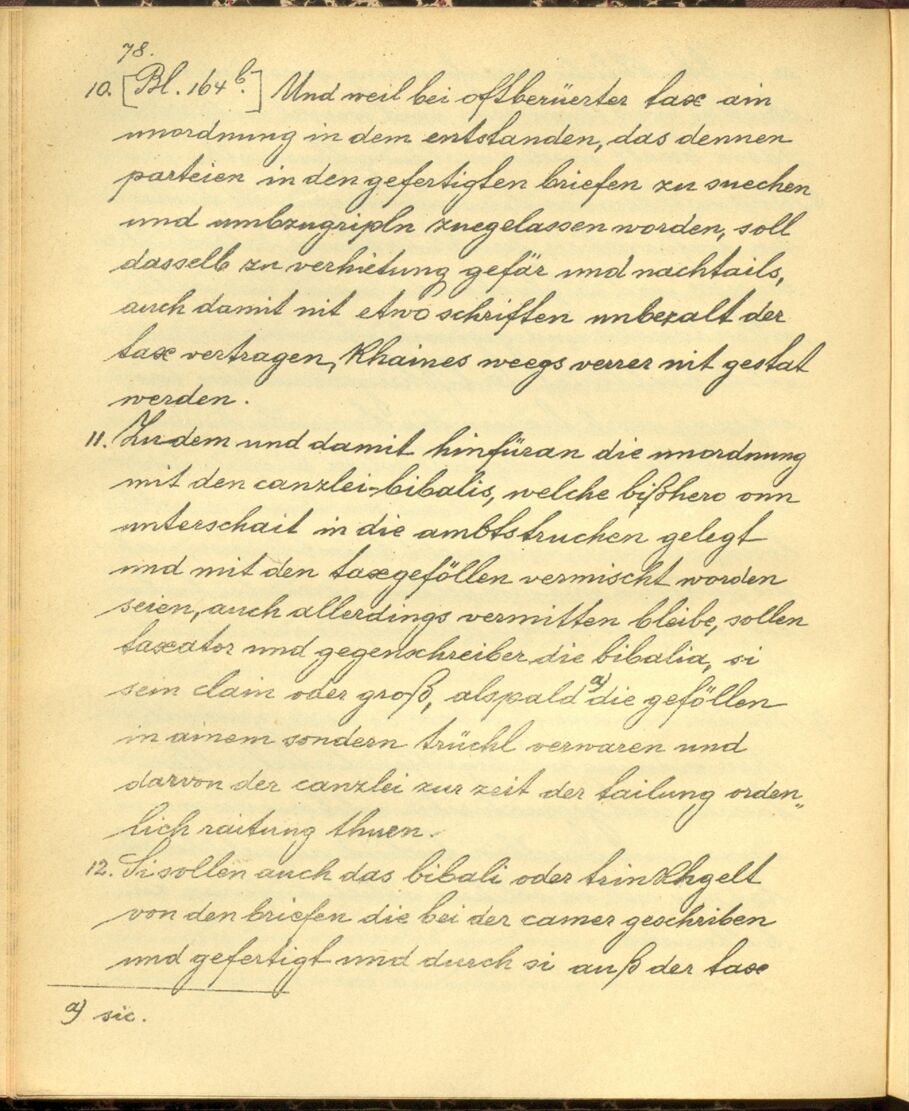 78.
10. [Bl. 164 b.] Und weil bei oftberüerter tax ain
unordnung in dem entstanden, das dennen
parteien in den gefertigten briefen zu suechen
und umbzugripln zuegelassen worden, soll
dasselb zu verhietung gefär und nachtails,
auch damit nit etwo schriften unbezalt der
tax vertragen, khaines weegs verrer nit gestat
werden.
11. Zu dem und damit hinfüran die unordnung
mit den canzlei-bibalis, welche bißhero onn
unterschait in die ambtstruchen gelegt
und mit den taxgeföllen vermischt worden
seien, auch allerdings vermitten bleibe, sollen
taxator und gegenschreiber die bibalia, si
sein clain oder groß, alspald a) die geföllen
in ainem sondern trüchl verwaren und
darvon der canzlei zur zeit der tailung orden„
lich raitung thuen.
12. Si sollen auch das bibali oder trinkhgelt
von den briefen die bei der camer geschriben
und gefertigt und durch si auß der tax
a) sic.